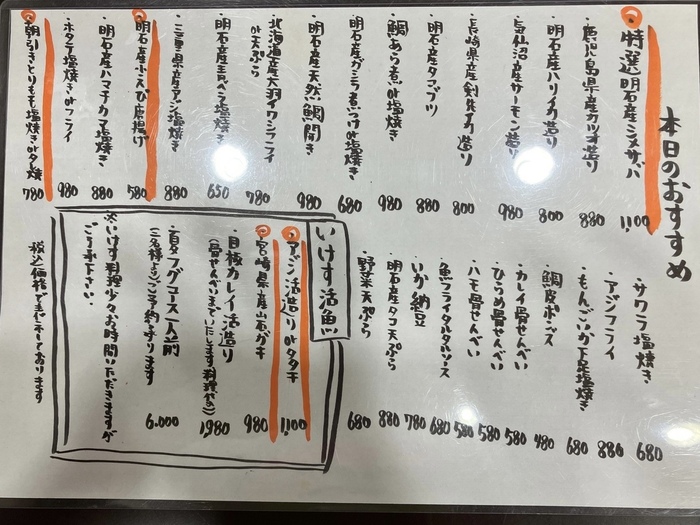 本日のおすすめ
・特選明石産シメサバ 1,100
・鹿児島県産カツオ造り 880
・明石産ハリイカ造り 800
・気仙沼産サーモン造り 980
・長崎県産剣先イカ造り 800
・明石産タコブツ 880
・鯛あら煮or塩焼き 980
・明石産ガシラ煮つけor塩焼き 680
・明石産天然鯛開き 980
・北海道産大羽イワシフライor天ぷら 780
・明石産舌ベラ塩焼き 650
・三重県産アジ塩焼き 880
・明石産小えび唐揚げ 580
・明石産ハマチカマ塩焼き 880
・ホタテ塩焼きorフライ 980
・朝引きとりもも塩焼きorタレ焼 780
・サワラ塩焼き 680
・アジフライ 880
・もんごいか下足塩焼き 680
・鯛皮ポン酢 480
・カレイ骨せんべい 580
・ひらめ骨せんべい 580
・ハモ骨せんべい 580
・魚フライタルタルソース 680
・いか納豆 780
・明石産タコ天ぷら 880
・野菜天ぷら 680
いけす活魚
・アジ活造りorタタキ 1,100
・宮崎県産岩ガキ 980
・目板カレイ活造り 1,980
(骨せんべいまでいたします料理代込)
・夏フグコース一人前 6,000
(二名様よりご予約承ります)
※いけす料理少々お時間いただきますが
ご了承下さい。
税込価格で表示しております